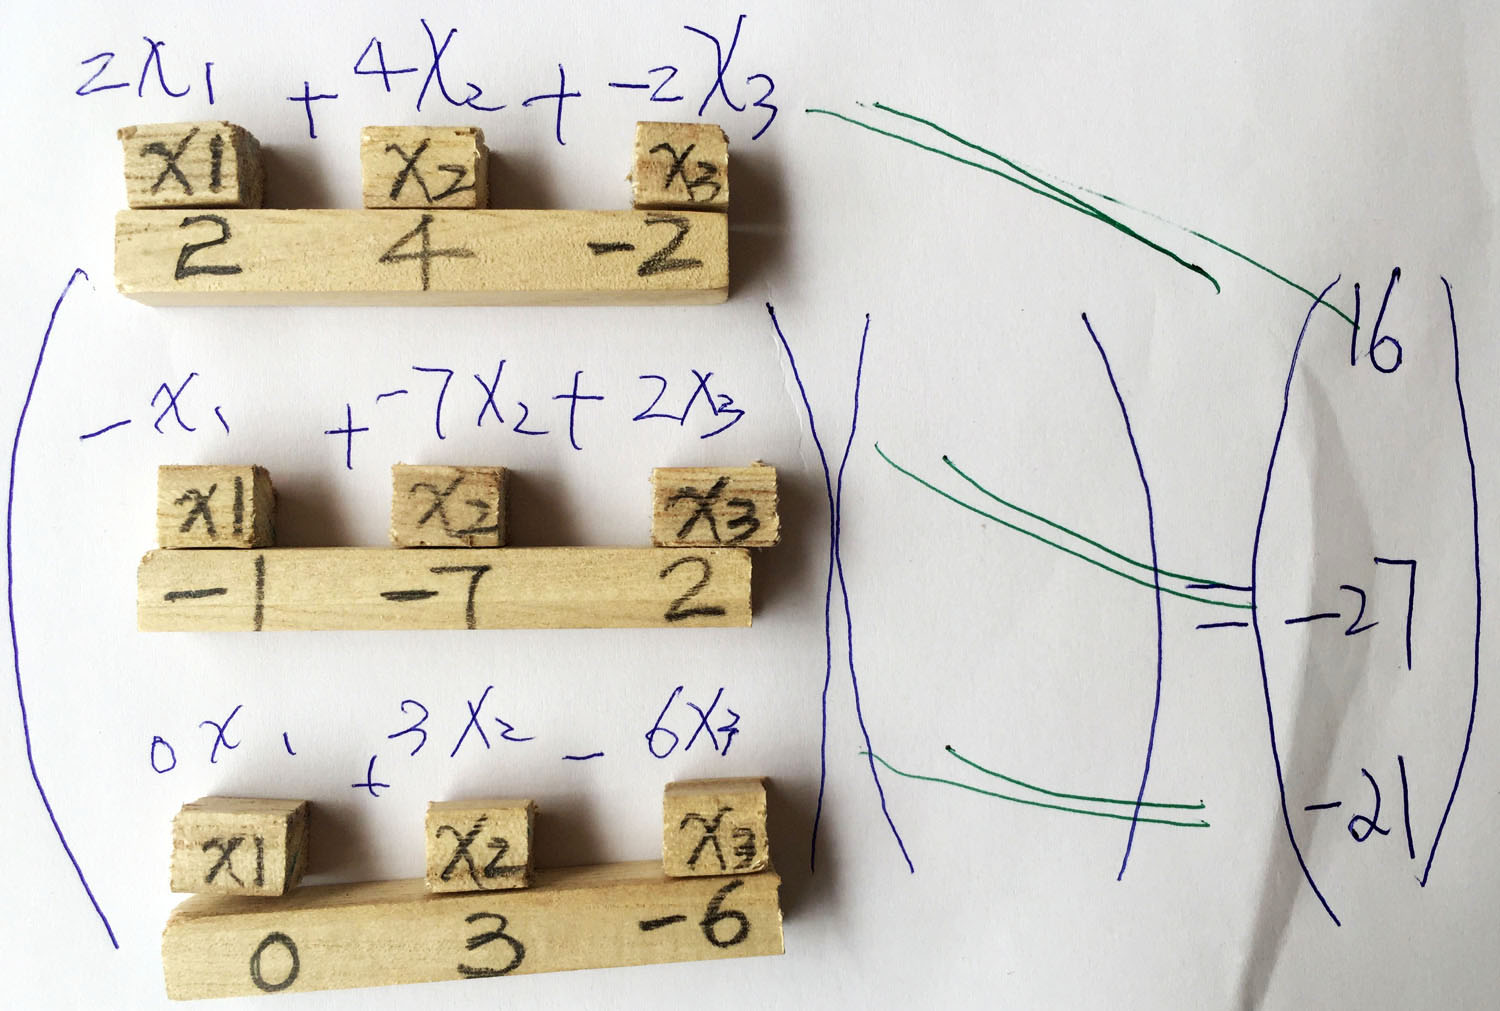 2x1 + 4x2 + -2x3
x1 x2 x3
2 4 -2
16
-x1 + -7x2 + 2x3
x1 x2 x3
-1 -7 2
= -27
0x1 + 3x2 - 6x3
x1 x2 x3
0 3 -6
-21